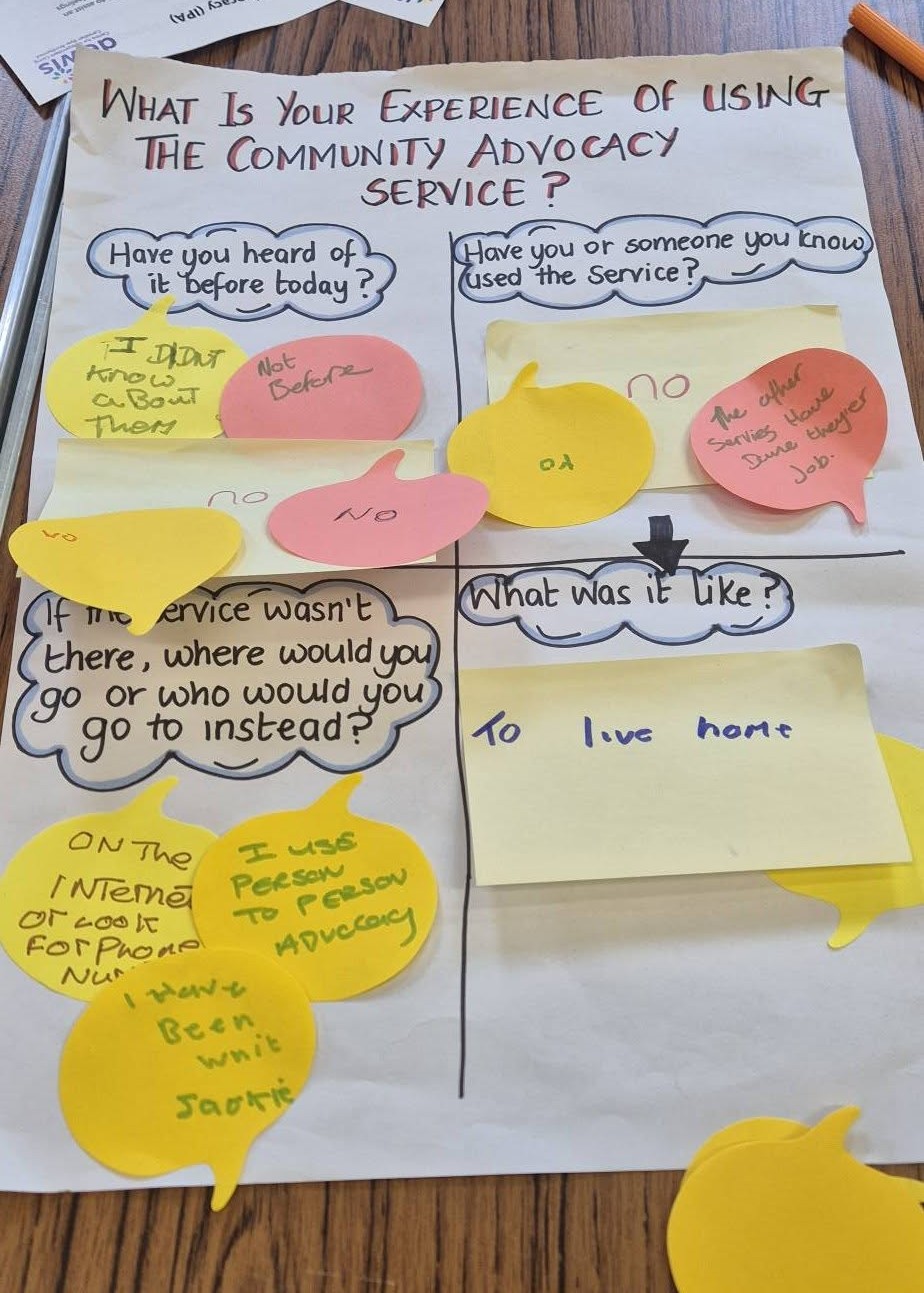 WHAT IS YOUR EXPERIENCE OF USING
THE COMMUNITY ADVOCACY
SERVICE?
Have you heard of
it before today?
I DIDNT
know
aBout
Them
Not
Before
no
NO
NO
Have you or someone you know
used the Service?
no
The other
Servies Have
Dune theyier
Job.
If the service wasn't
there, where would you
go or who would you
go to instead?
ON The
INTerneT
or Look
For Phone
I USE
PERSON
TO PERSON
ADvocacy
I Have
Been
whit
Jackie
What was it like?
To live home